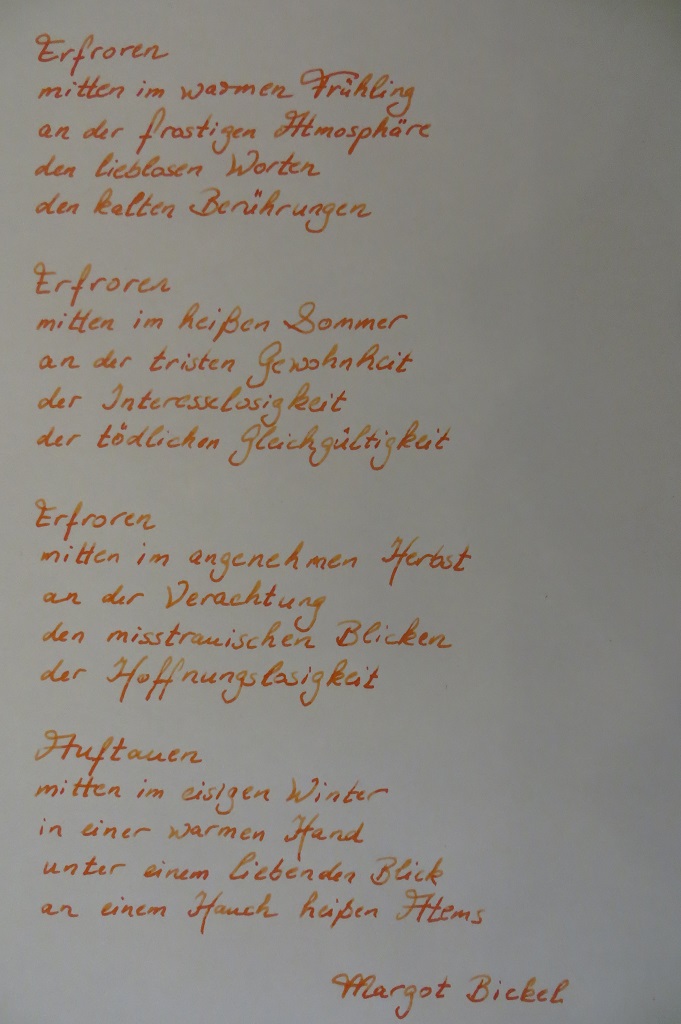 Erfroren
mitten im warmen Frühling
an der frostigen Atmosphäre
den lieblosen Worten
den kalten Berührungen
Erfroren
mitten im heißen Sommer
an der tristen Gewohnheit
der Interesselosigkeit
der tödlichen Gleichgültigkeit
Erfroren
mitten im angenehmen Herbst
an der Verachtung
den misstrauischen Blicken
der Hoffnungslosigkeit
Auftauen
mitten im eisigen Winter
in einer warmen Hand
unter einem liebenden Blick
an einem Hauch heißen Atems
Margot Bickel